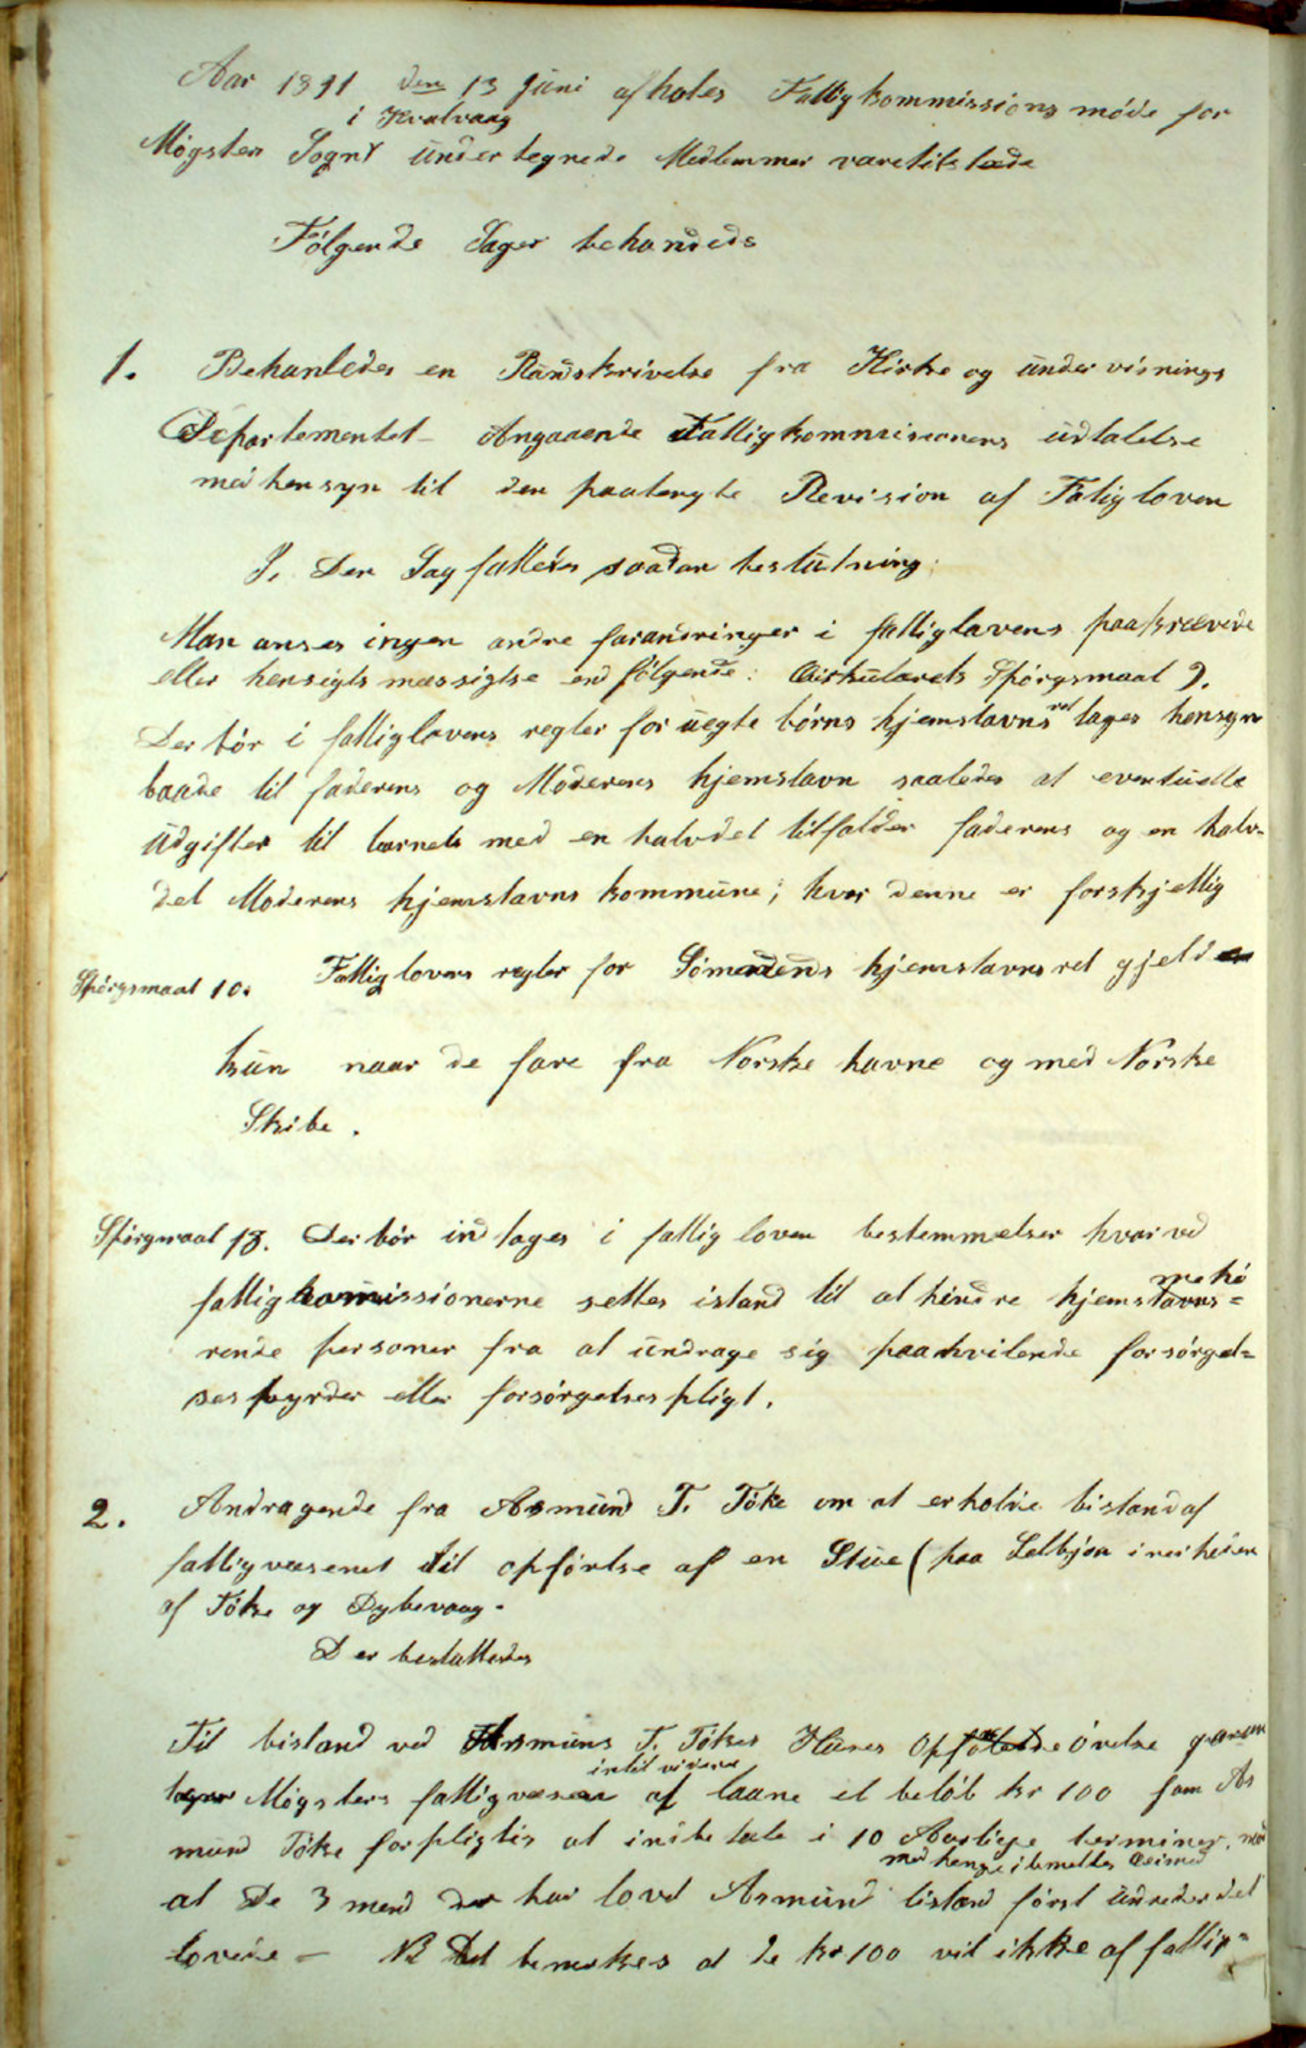 Aar 1891 den 13 Juni afholes Fattigkommissions møde for
i Hvalvaag
Møgster Sogn undertegnede Medlemmer varetilstæde
Følgende Sager behandeds
1. Behanledes en Rundskrivelse fra Kirke og undervisnings
Departementet Angaaende Fattigkommissionens udtalelse
med hensyn til den paatengte Revision af Fatigloven
I, Den Sag fattedes saadan beslutning:
Man anser ingen andre forandringer i fattiglavens paakrævede
eller hensigtsmæssigtse end følgende: Cirkulærets Spørgsmaal 9.
Der bør i fattiglovens regler for uegte børns hjemstavnsret tages hensyn
baade til faderens og Moderens hjemstavn saaledes at eventuelle
udgifter til barnets med en halvdel tilfalder faderens og en halv-
del Moderens hjemstavns kommune; hvor denne er forskjellig
Spørgsmaal 10. Fattiglovens regler for Sømendends hjemstavnsret gjelder
kun naar de fare fra Norske havne og med Norske
Skibe.
Spørgmaal 13. Der bør indtages i fattigloven bestemmelser hvorved
fattigkommissionerne settes istand til at hindre hjemstavns=
rende personer fra at undrage sig paahvilende forsørgel=
ses byrder eller forsørgelsespligt.
2. Andragende fra Asmund T. Tøke om at erholde bistand af
fattigvæsenet til opførlse af en Stue (paa Selbjøn i nerheden
af Tøke og Dybevaag.
Der besluttedes
Til bistand ved Asmuns T. Tøkes Huses Op øvelse
intil videre
Møgsters fattigvæsen af laane et beløb kr 100 som As
mund Tøke forpligtis at indbetale i 10 Aarlige terminer,
med
at De 3 mend der har lovd Asmund bistand først undreder det
lovede — NB Det bemerkes at de kr 100 vil ikke af fattig=